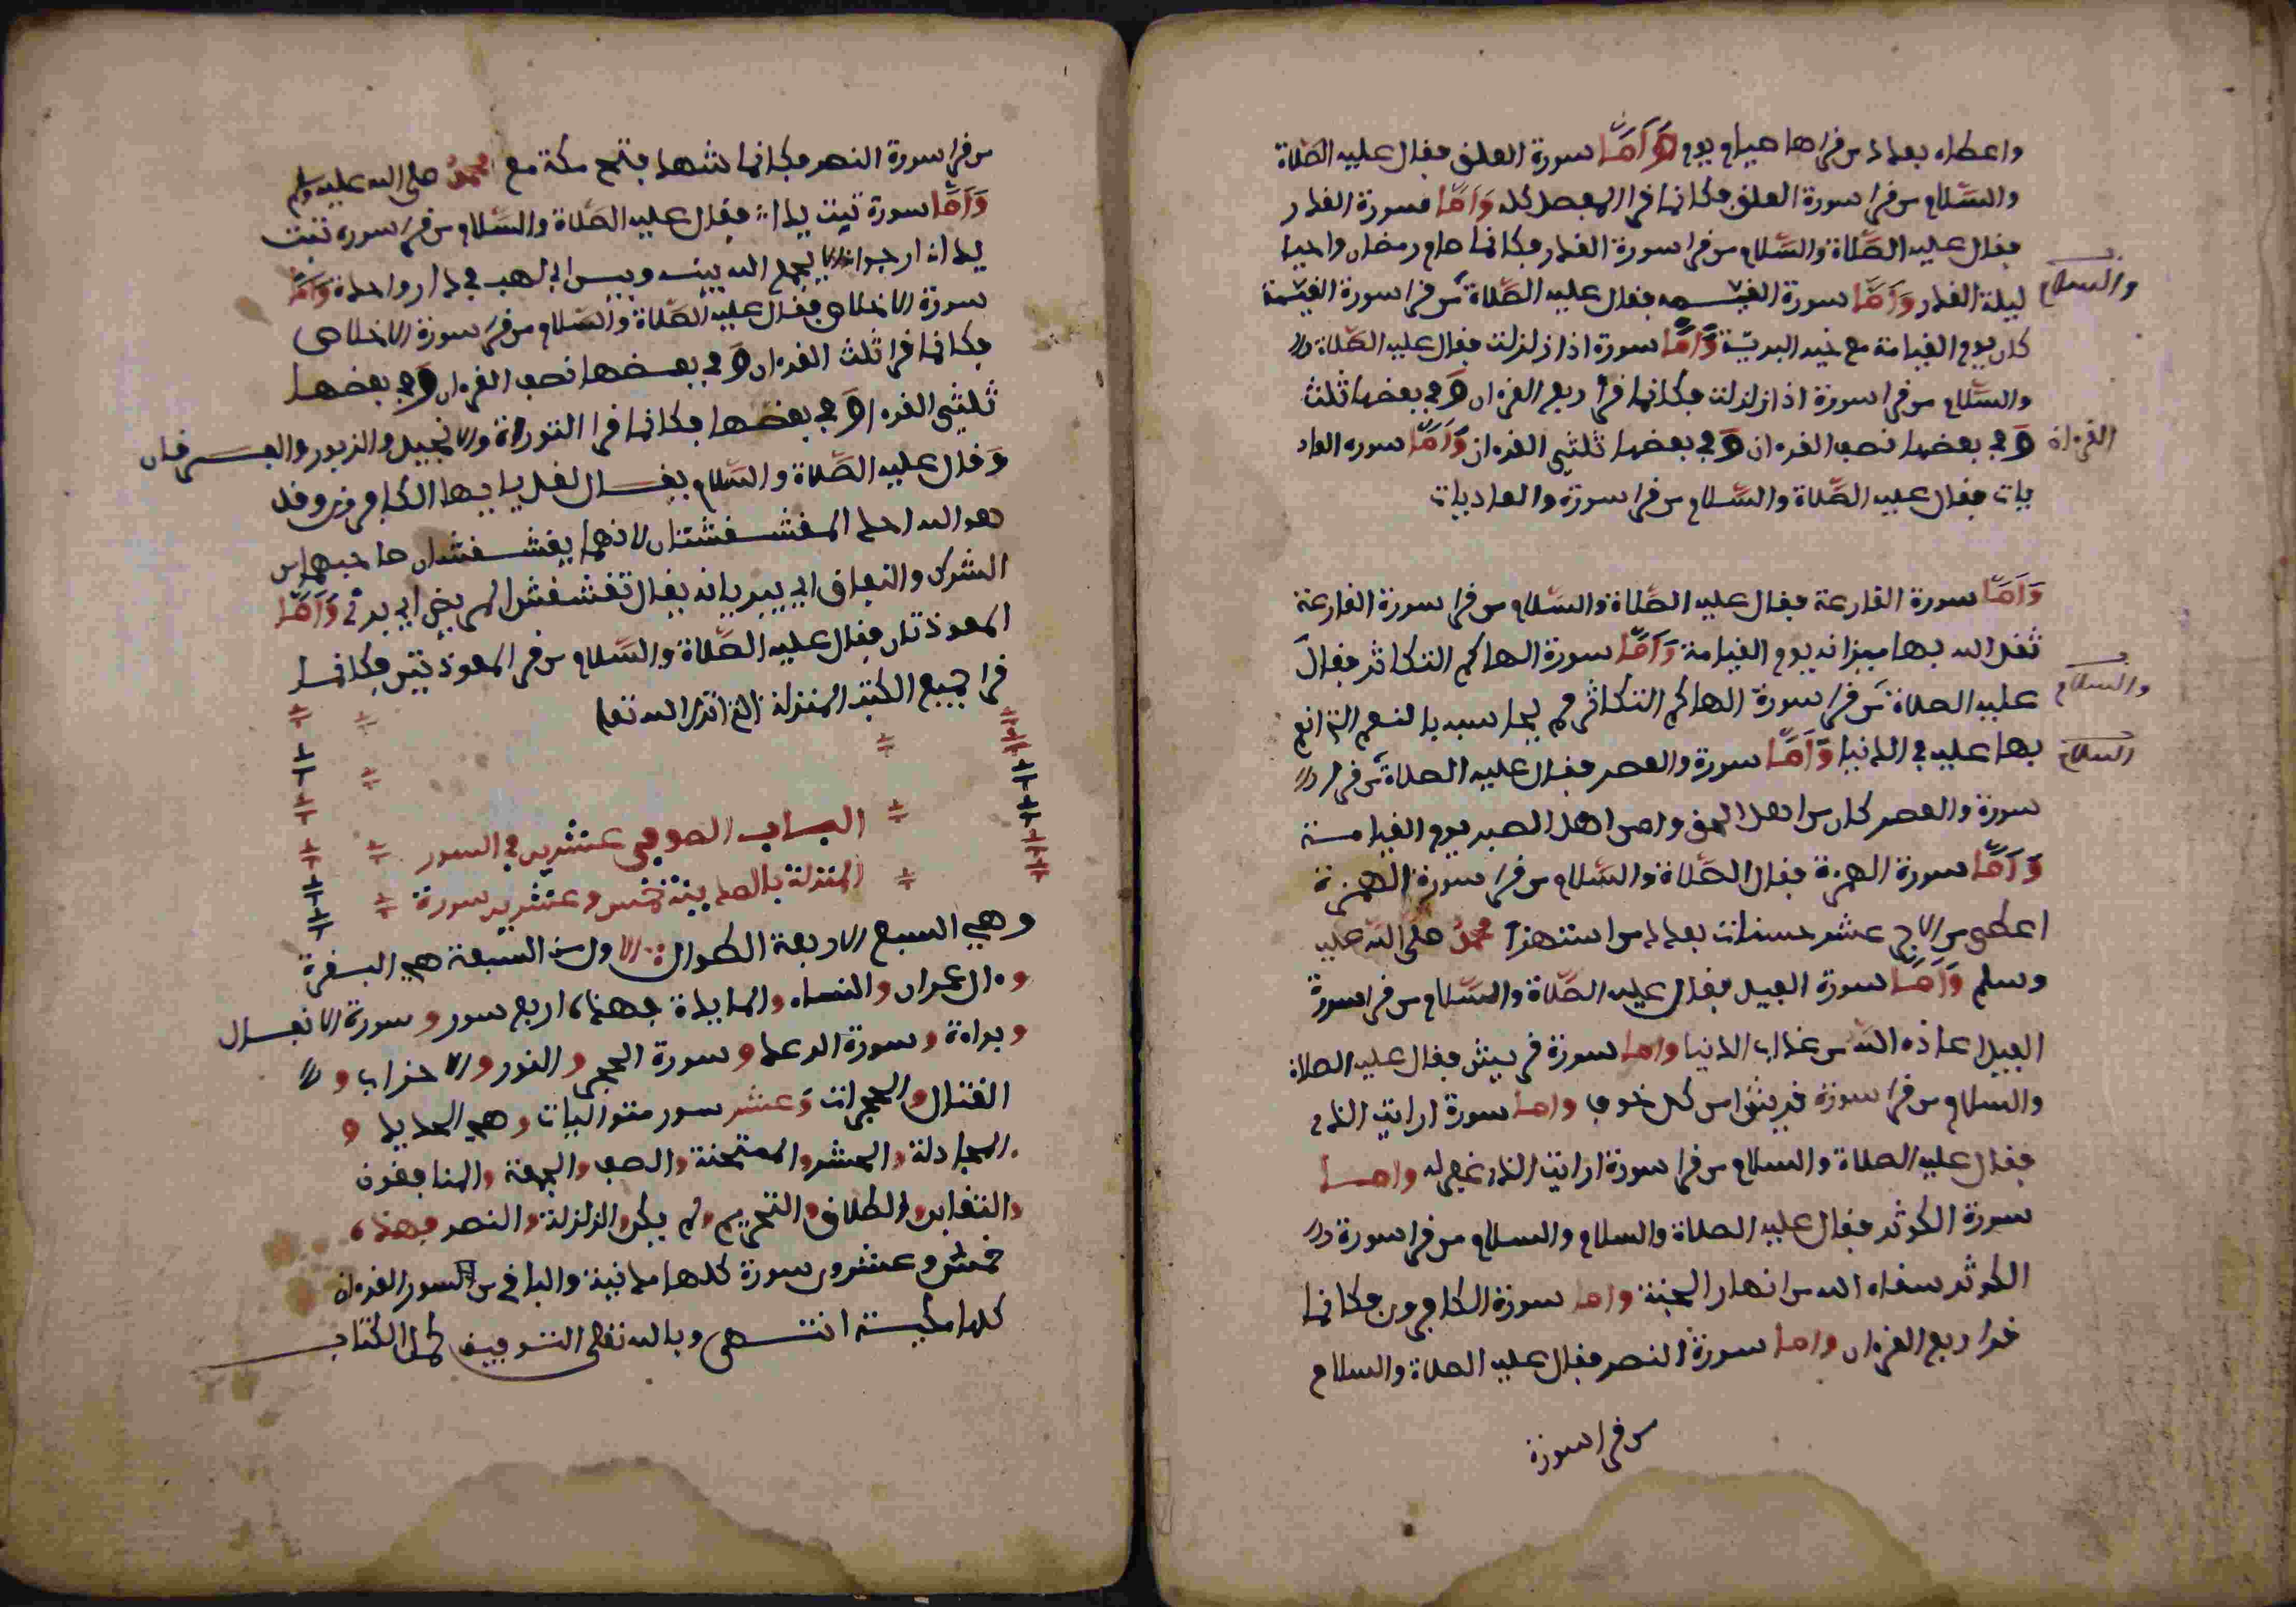 واعطاه بعدد من قراها صيام يوم وَأَمَّا سورة العلق فقال عليه الصّلاة
والسّلام من قرا سورة العلق فكانما قرا المفصل كله وَأَمَّا سورة القدر
فقال عليه الصّلاة والسّلام من قرا سورة القدر فكانما صام رمضان واحيا
ليلة القدر وَأَمَّا سورة القيمة فقال عليه الصّلاة من قرا سورة القيمة
والسلام
كان يوم القيامة مع خير البريّة وَأَمَّا سورة اذا زلزلت فقال عليه الصّلاة
والسّلام من قرا سورة اذا زلزلت فكانما قرا ربع القرءان وفي بعضها ثلث
القرءان وفي بعضها نصف القرءان وفي بعضها ثلثي القرءان وَأَمَّا سورة العاد
يات فقال عليه الصّلاة والسّلام من قرا سورة والعاديات
وَأَمَّا سورة القارعة فقال عليه الصّلاة والسّلام من قرا سورة القارعة
ثقل الله بها ميزانه يوم القيامة وَأَمَّا سورة الهاكم التكاثر فقال
عليه الصلاة من قرا سورة الهاكم التكاثر لم يحاسبه بالنعم التي انعم
والسلام
بها عليه في الدنيا وَأَمَّا سورة والعصر فقال عليه الصلاة من قرا
السلام
سورة والعصر كان من اهل الحق ومن اهل الصبر يوم القيامة
وَأَمَّا سورة الهمزة فقال الصّلاة والسّلام من قرا سورة الهمزة
اعطي من الاجر عشر حسنات بعدد من استهزا محمد صلى الله عليه
وسلم وَأَمَّا سورة الفيل فقال عليه الصّلاة والسّلام من قرا سورة
الفيل اعاذه الله من عذاب الدنيا واما سورة قريش فقال عليه الصلاة
والسلام من قرا سورة قريش امن كل خوف واما سورة ارايت الذي
فقال عليه الصلاة والسلام من قرا سورة ارايت الذي غفر له واما
سورة الكوثر فقال عليه الصلاة والسلام والسلام من قرا سورة
الكوثر سقاه الله من انهار الجنة واما سورة الكافرون فكانما
قرا ربع القرءان واما سورة النصر فقال عليه الصلاة والسلام
من قرا سورة
من قرا سورة النصر فكانما شهد فتح مكة مع محمد صلى الله عليه وسلم
وَأَمَّا سورة تبت يدا فقال عليه الصّلاة والسّلام من قرا سورة تبت
يدا ارجوا ان لا يجمع الله بينه وبين ابي لهب في دار واحدة وَأَمَّا
سورة الاخلاص فقال عليه الصّلاة والسّلام من قرا سورة الاخلاص
فكانما قرا ثلث القرءان وفي بعضها نصف القرءان وفي بعضها
ثلثي القرءان وفي بعضها فكانما قرا التوراة والانجيل والزبور والفرقان
وَقال عليه الصّلاة والسّلام يقال لقل يا ايها الكافرون وقل
هو الله احد المقشقشتان لانهما يقشقشان صاحبهما من
الشرك والنفاق اي يبريانه يقال تقشقش المريض اي برئ وَأَمَّا
المعوذتان فقال عليه الصّلاة والسّلام من قرا المعوذتين فكانما
قرا جميع الكتب المنزلة التي انزل الله تعلى
الباب الموفي عشرين في السور
المنزلة بالمدينة خمس وعشرين سورة
وهي السبع الاربعة الطوال الاول من السبعة هي البقرة
وءال عمران والنساء والمايدة فهذه اربع سور وسورة الانفال
وبراءة وسورة الرعد وسورة الحج والنور والاحزاب و
القتال والحجرات وَعشر سور متواليات وهي الحديد و
المجادلة والحشر والممتحنة والصف والجمعة والمنافقون
والتغابن والطلاق والتحريم ولم يكن والزلزلة والنصر فهذه
خمس وعشرون سورة كلها مدنية والباقي من السور القرءان
كلها مكية انتهى وبالله تعلى التوفيق كمل الكتاب